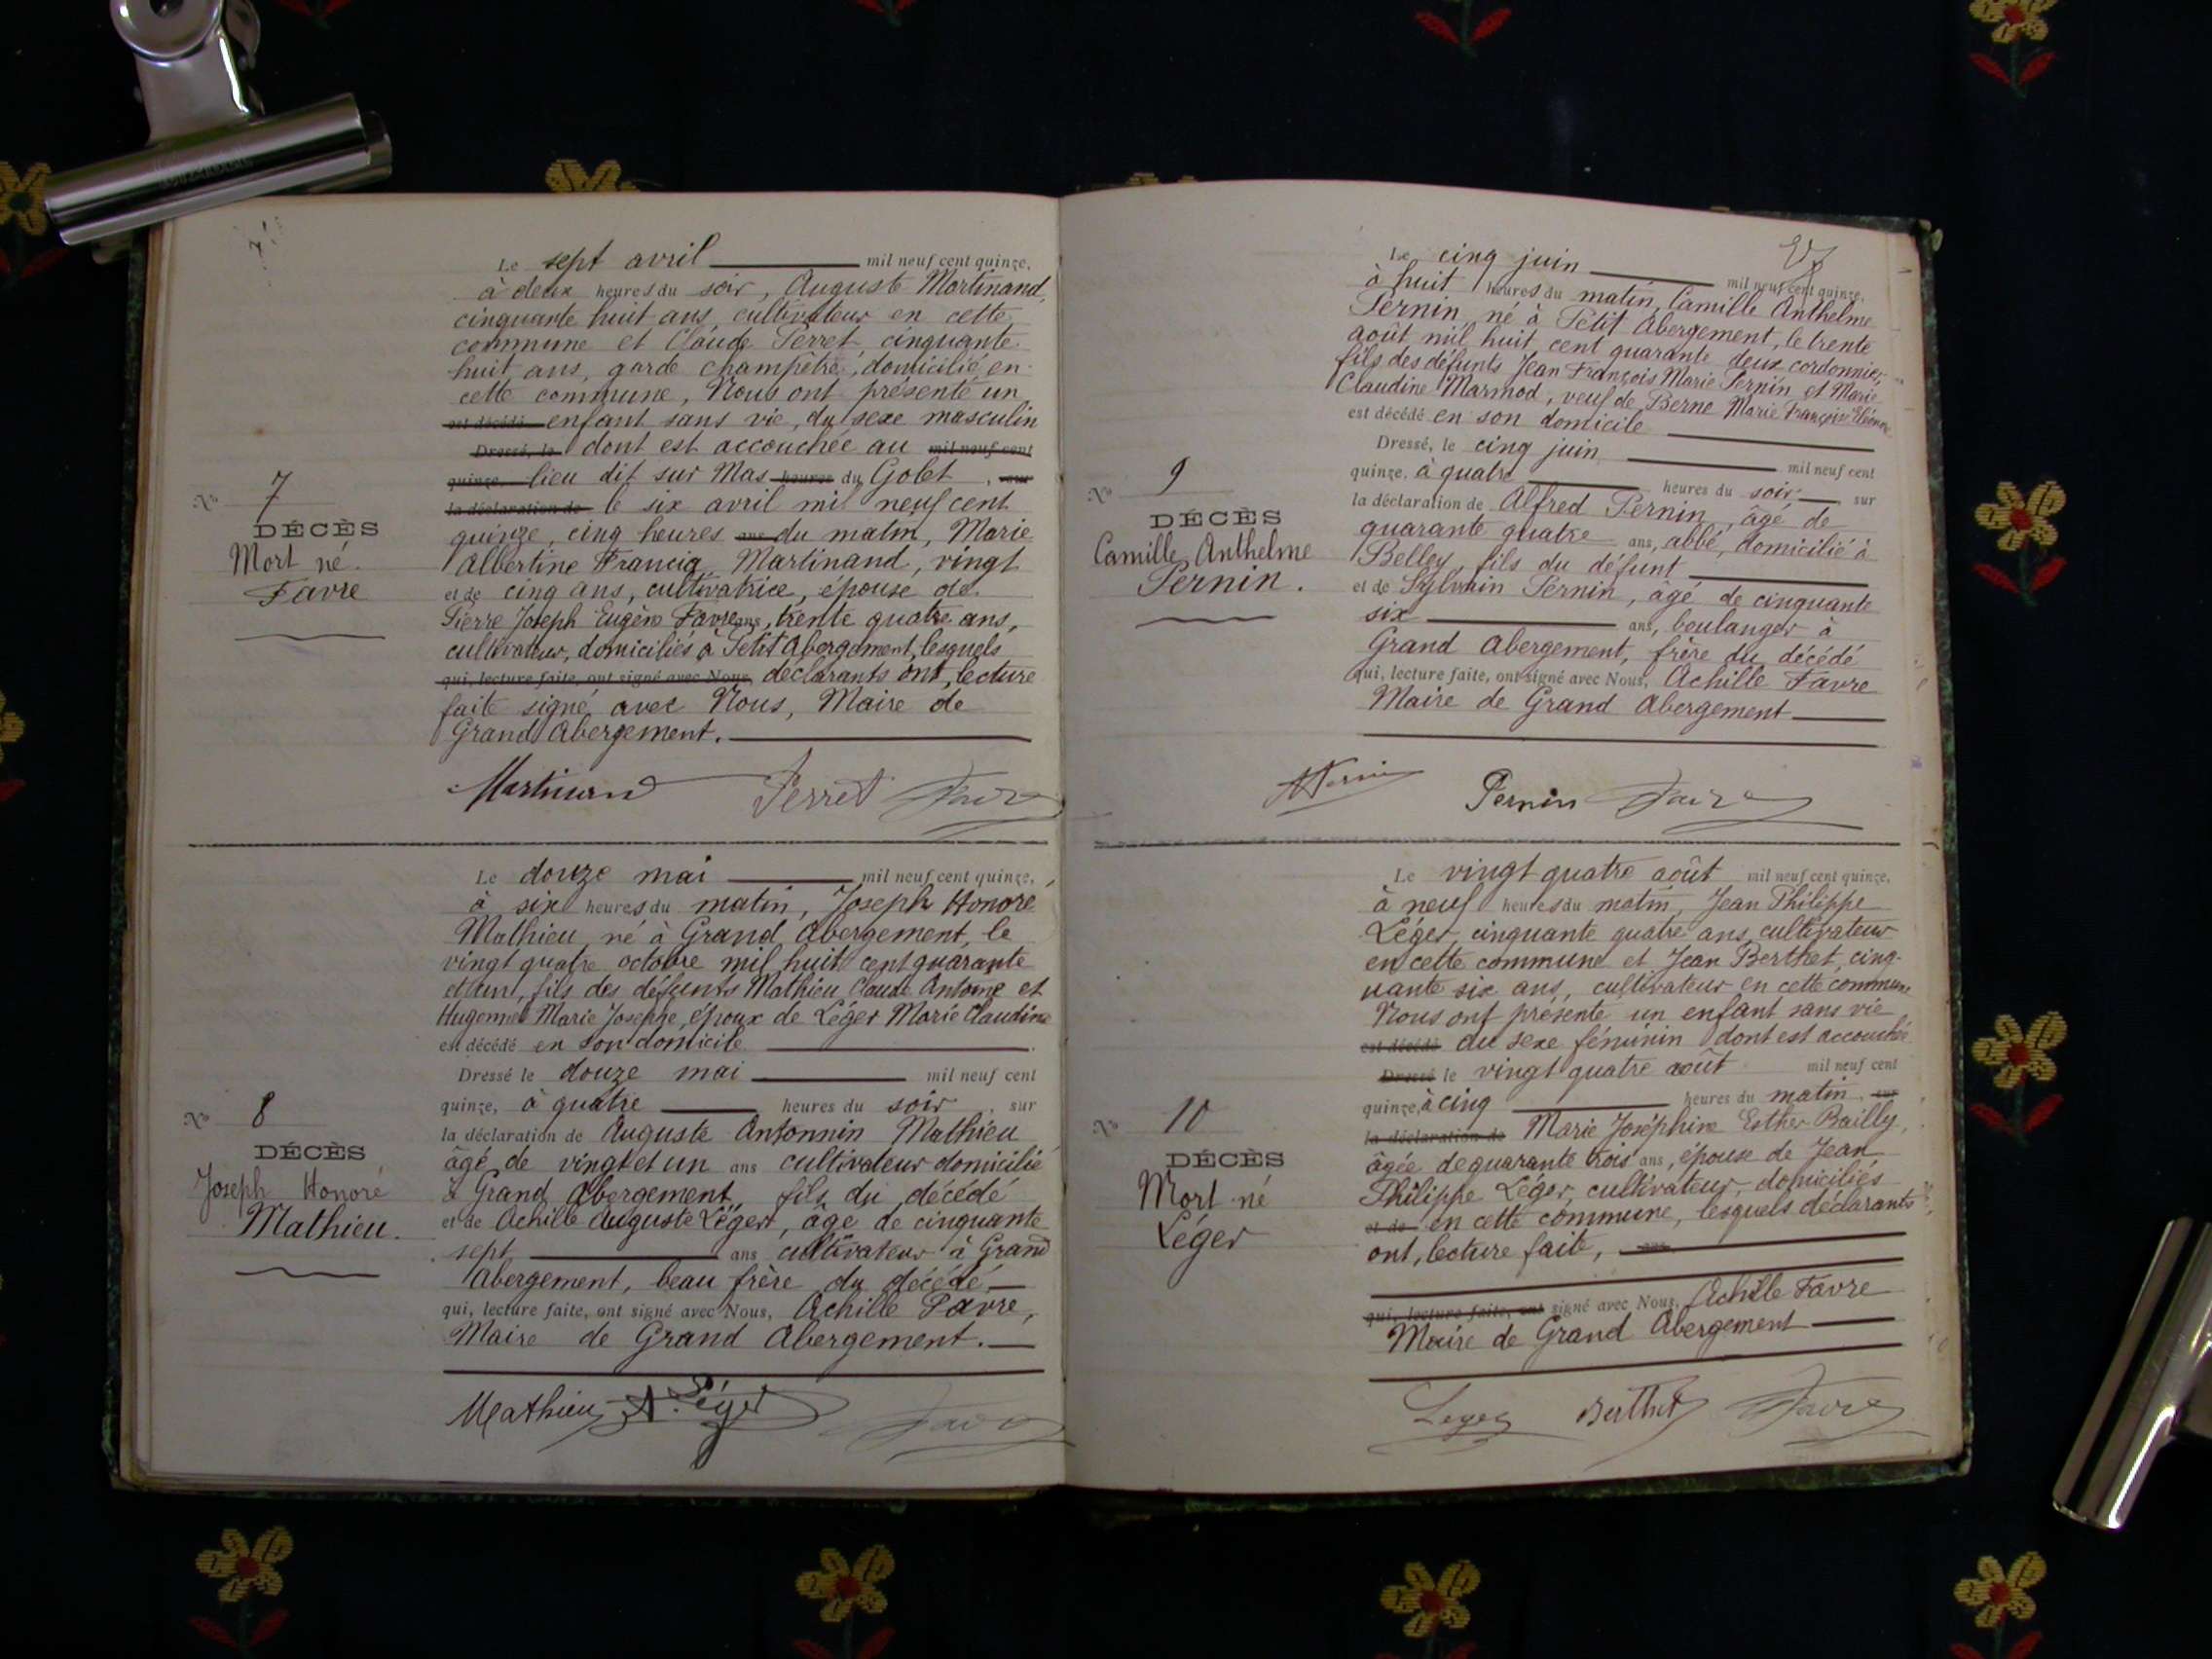 Le sept avril mil neuf cent quinze,
à deux heures du soir, Auguste Martinand,
cinquante huit ans, cultivateur en cette
commune et Claude Perret, cinquante
huit ans, garde champêtre, domicilié en
cette commune, Nous ont présenté un
est décédé enfant sans vie, du sexe masculin
Dressé, le dont est accouchée au mil neuf cent
quinze lieu dit sur Mas heures du Golet, sur
la déclaration de le six avril mil neuf cent
quinze, cinq heures ans du matin, Marie
Albertine Francia Martinand, vingt
et de cinq ans, cultivatrice, épouse de
Pierre Joseph Eugène Favre ans, trente quatre ans,
cultivateur, domiciliés à Petit Abergement, lesquels
qui, lecture faite, ont signé avec Nous, déclarants ont, lecture
faite signé avec Nous, Maire de
Grand Abergement.
Martinand Perret Favre
No 7
DÉCÈS
Mort né
Favre
Le douze mai mil neuf cent quinze,
à six heures du matin, Joseph Honoré
Mathieu, né à Grand Abergement, le
vingt quatre octobre mil huit cent quarante
et un, fils des défunts Mathieu Claude Antoine et
Marie Josephe, époux de Léger Marie Claudine
est décédé en son domicile
Dressé le douze mai mil neuf cent
quinze, à quatre heures du soir, sur
la déclaration de Auguste Antonnin Mathieu
âgé de vingt et un ans cultivateur domicilié
à Grand Abergement, fils du décédé
et de Achille Auguste Léger, âgé de cinquante
sept ans cultivateur à Grand
Abergement, beau frère du décédé
qui, lecture faite, ont signé avec Nous, Achille Favre,
Maire de Grand Abergement.
Mathieu A. Léger Favre
No 8
DÉCÈS
Joseph Honoré
Mathieu.
Le cinq juin mil neuf cent quinze,
à huit heures du matin, Camille Anthelme
Pernin, né à Petit Abergement, le trente
août mil huit cent quarante deux, cordonnier,
fils des défunts Jean François Marie Pernin et Marie
Claudine Marmod, veuf de Berne Marie Françoise Eléonore
est décédé en son domicile
Dressé, le cinq juin mil neuf cent
quinze, à quatre heures du soir, sur
la déclaration de Alfred Pernin, âgé de
quarante quatre ans, abbé, domicilié à
Belley, fils du défunt
et de Sylvain Pernin, âgé de cinquante
six ans, boulanger à
Grand Abergement, frère du décédé
qui, lecture faite, ont signé avec Nous, Achille Favre
Maire de Grand Abergement
Pernin Pernin Favre
No 9
DÉCÈS
Camille Anthelme
Pernin.
Le vingt quatre août mil neuf cent quinze,
à neuf heures du matin, Jean Philippe
Léger, cinquante quatre ans, cultivateur
en cette commune et Jean Berthet, cinq-
uante six ans, cultivateur en cette commune
Nous ont présenté un enfant sans vie
est décédé du sexe féminin dont est accouchée
Dressé le vingt quatre août mil neuf cent
quinze, à cinq heures du matin, sur
la déclaration de Marie Joséphine Esther Bailly,
âgée de quarante trois ans, épouse de Jean
Philippe Léger, cultivateur, domiciliés
et de en cette commune, lesquels déclarants
ont, lecture faite, ans
qui, lecture faite, ont signé avec Nous, Achille Favre
Maire de Grand Abergement
Leger Berthet Favre
No 10
DÉCÈS
Mort né
Léger